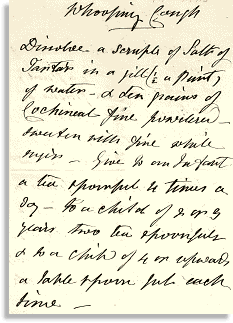 Whooping Cough
Disolve a scruple of Salt of
Tartar in a jill (½ a pint)
of water - & ten grains of
Cochineal fine powdered -
sweaten with fine white
sugar - Give to an Infant
a tea spoonful 4 times a
day - to a child of 2 or 3
years two tea spoonfuls
& to a child of 4 or upwards
a table spoon full each
time -